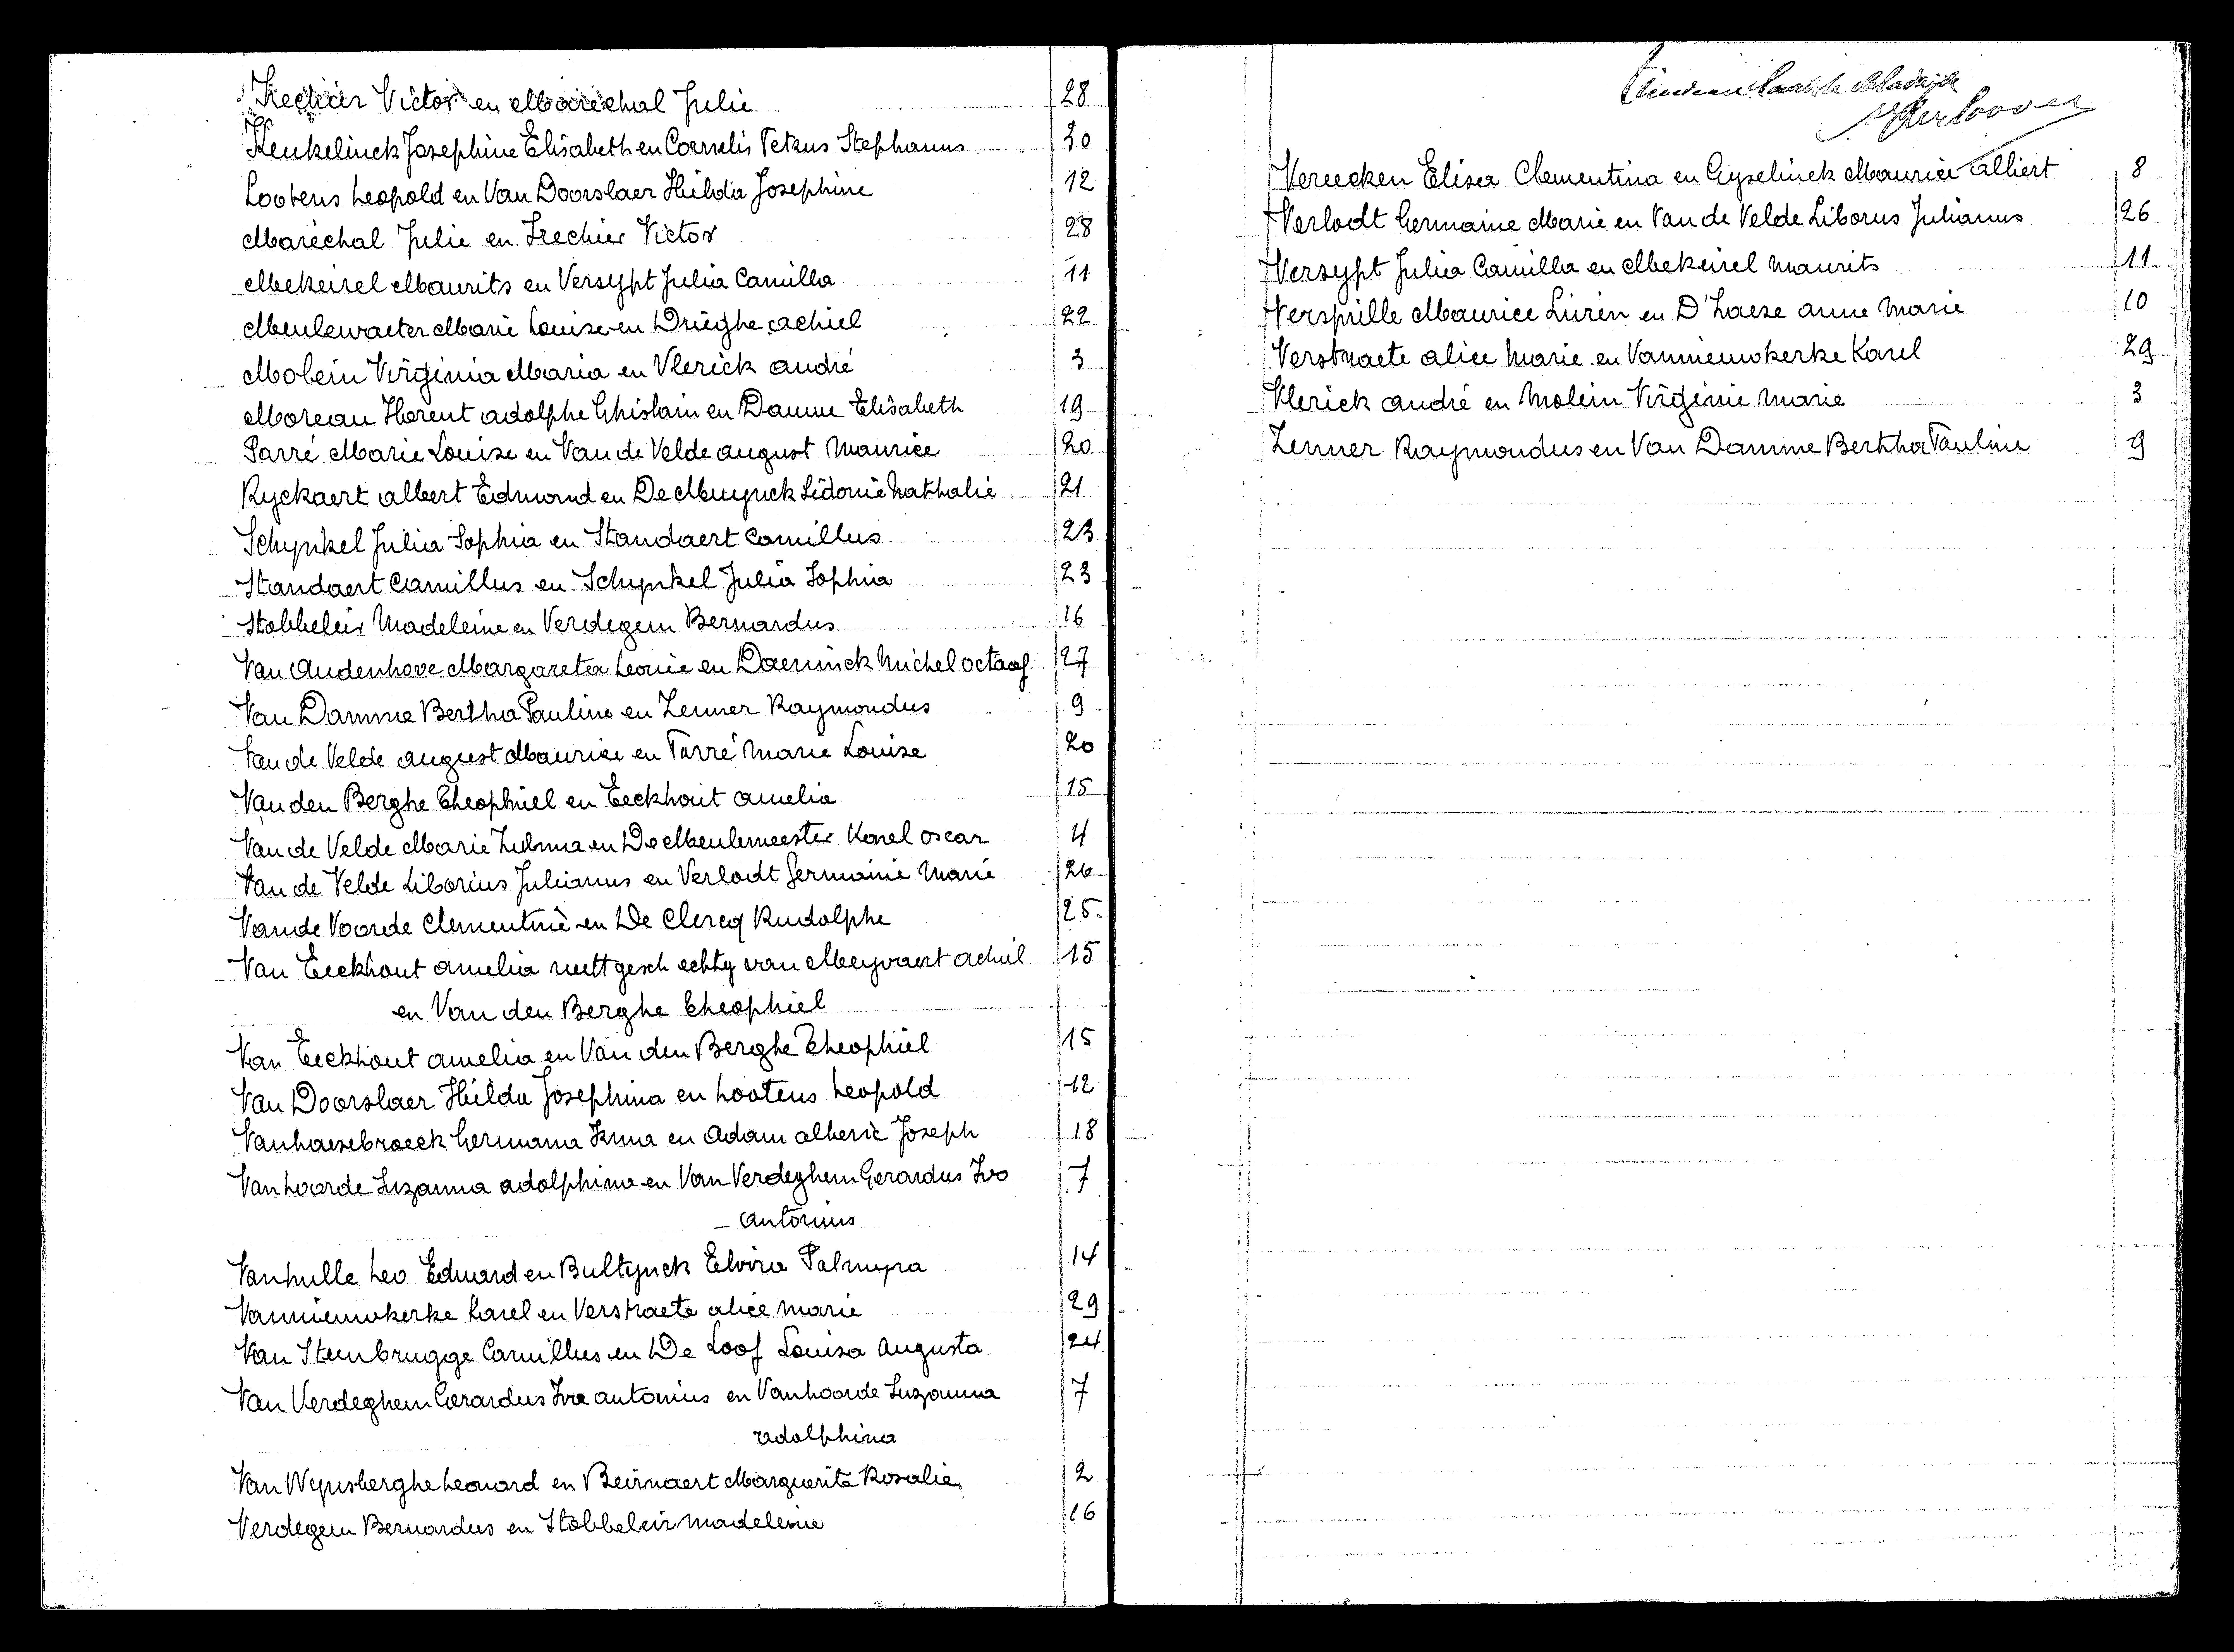 Frechier Victor en Maréchal Julie 28
Keukelinck Josephine Elisabeth en Cornelis Petrus Stephanus 30
Lootens Leopold en Van Doorslaer Hilda Josephine 12
Maréchal Julie en Frechier Victor 28
Mekeirel Maurits en Versypt Julia Camilla 11
Meulewaeter Marie Louise en Drieghe Achiel 22
Molein Virginia Maria en Vlerick André 3
Moreau Florent Adolphe Ghislain en Damme Elisabeth 19
Parré Marie Louise en Van de Velde August Maurice 20
Ryckaert Albert Edmond en De Muynck Sidonie Nathalie 21
Schynkel Julia Sophia en Standaert Camillus 23
Standaert Camillus en Schynkel Julia Sophia 23
Stobbeleir Madeleine en Verdegem Bernardus 16
Van Audenhove Margareta Leonie en Daeninck Michel Octaaf 27
Van Damme Bertha Pauline en Zenner Raymondus 9
Van de Velde August Maurice en Parré Marie Louise 20
Van den Berghe Theophiel en Eeckhout Amelia 15
Van de Velde Marie Zulma en De Meulemeester Karel Oscar 4
Van de Velde Liborius Julianus en Verlodt Germaine Marie 26
Van de Voorde Clementine en De Clercq Rudolphe 25
Van Eeckhout Amelia wettgesch echtg van Meyvaert Achiel 15
en Van den Berghe Theophiel
Van Eeckhout Amelia en Van den Berghe Theophiel 15
Van Doorslaer Hilda Josephina en Lootens Leopold 12
Vanhaesebroeck Germana Irma en Adam Alberic Joseph 18
Vanhoorde Suzanna Adolphina en Van Verdeghem Gerardus Ivo 7
Antonius
Vanhulle Leo Eduard en Bultynck Elvira Palmyra 14
Vannieuwkerke Karel en Verstraete Alice Marie 29
Van Steenbrugge Camillus en De Loof Louisa Augusta 24
Van Verdeghem Gerardus Ivo Antonius en Vanhoorde Suzanna 7
Adolphina
Van Wynsberghe Leonard en Beirnaert Marguerite Rosalie 2
Verdegem Bernardus en Stobbeleir Madeleine 16
Vereecken Elisa Clementina en Gyselinck Maurice Albert 8
Verlodt Germaine Marie en Van de Velde Liborus Julianus 26
Versypt Julia Camilla en Mekeirel Maurits 11
Verspille Maurice Lucien en D'Haese Anne Marie 10
Verstraete Alice Marie en Vannieuwkerke Karel 29
Vlerick André en Molein Virginie Marie 3
Zenner Raymondus en Van Damme Bertha Pauline 9